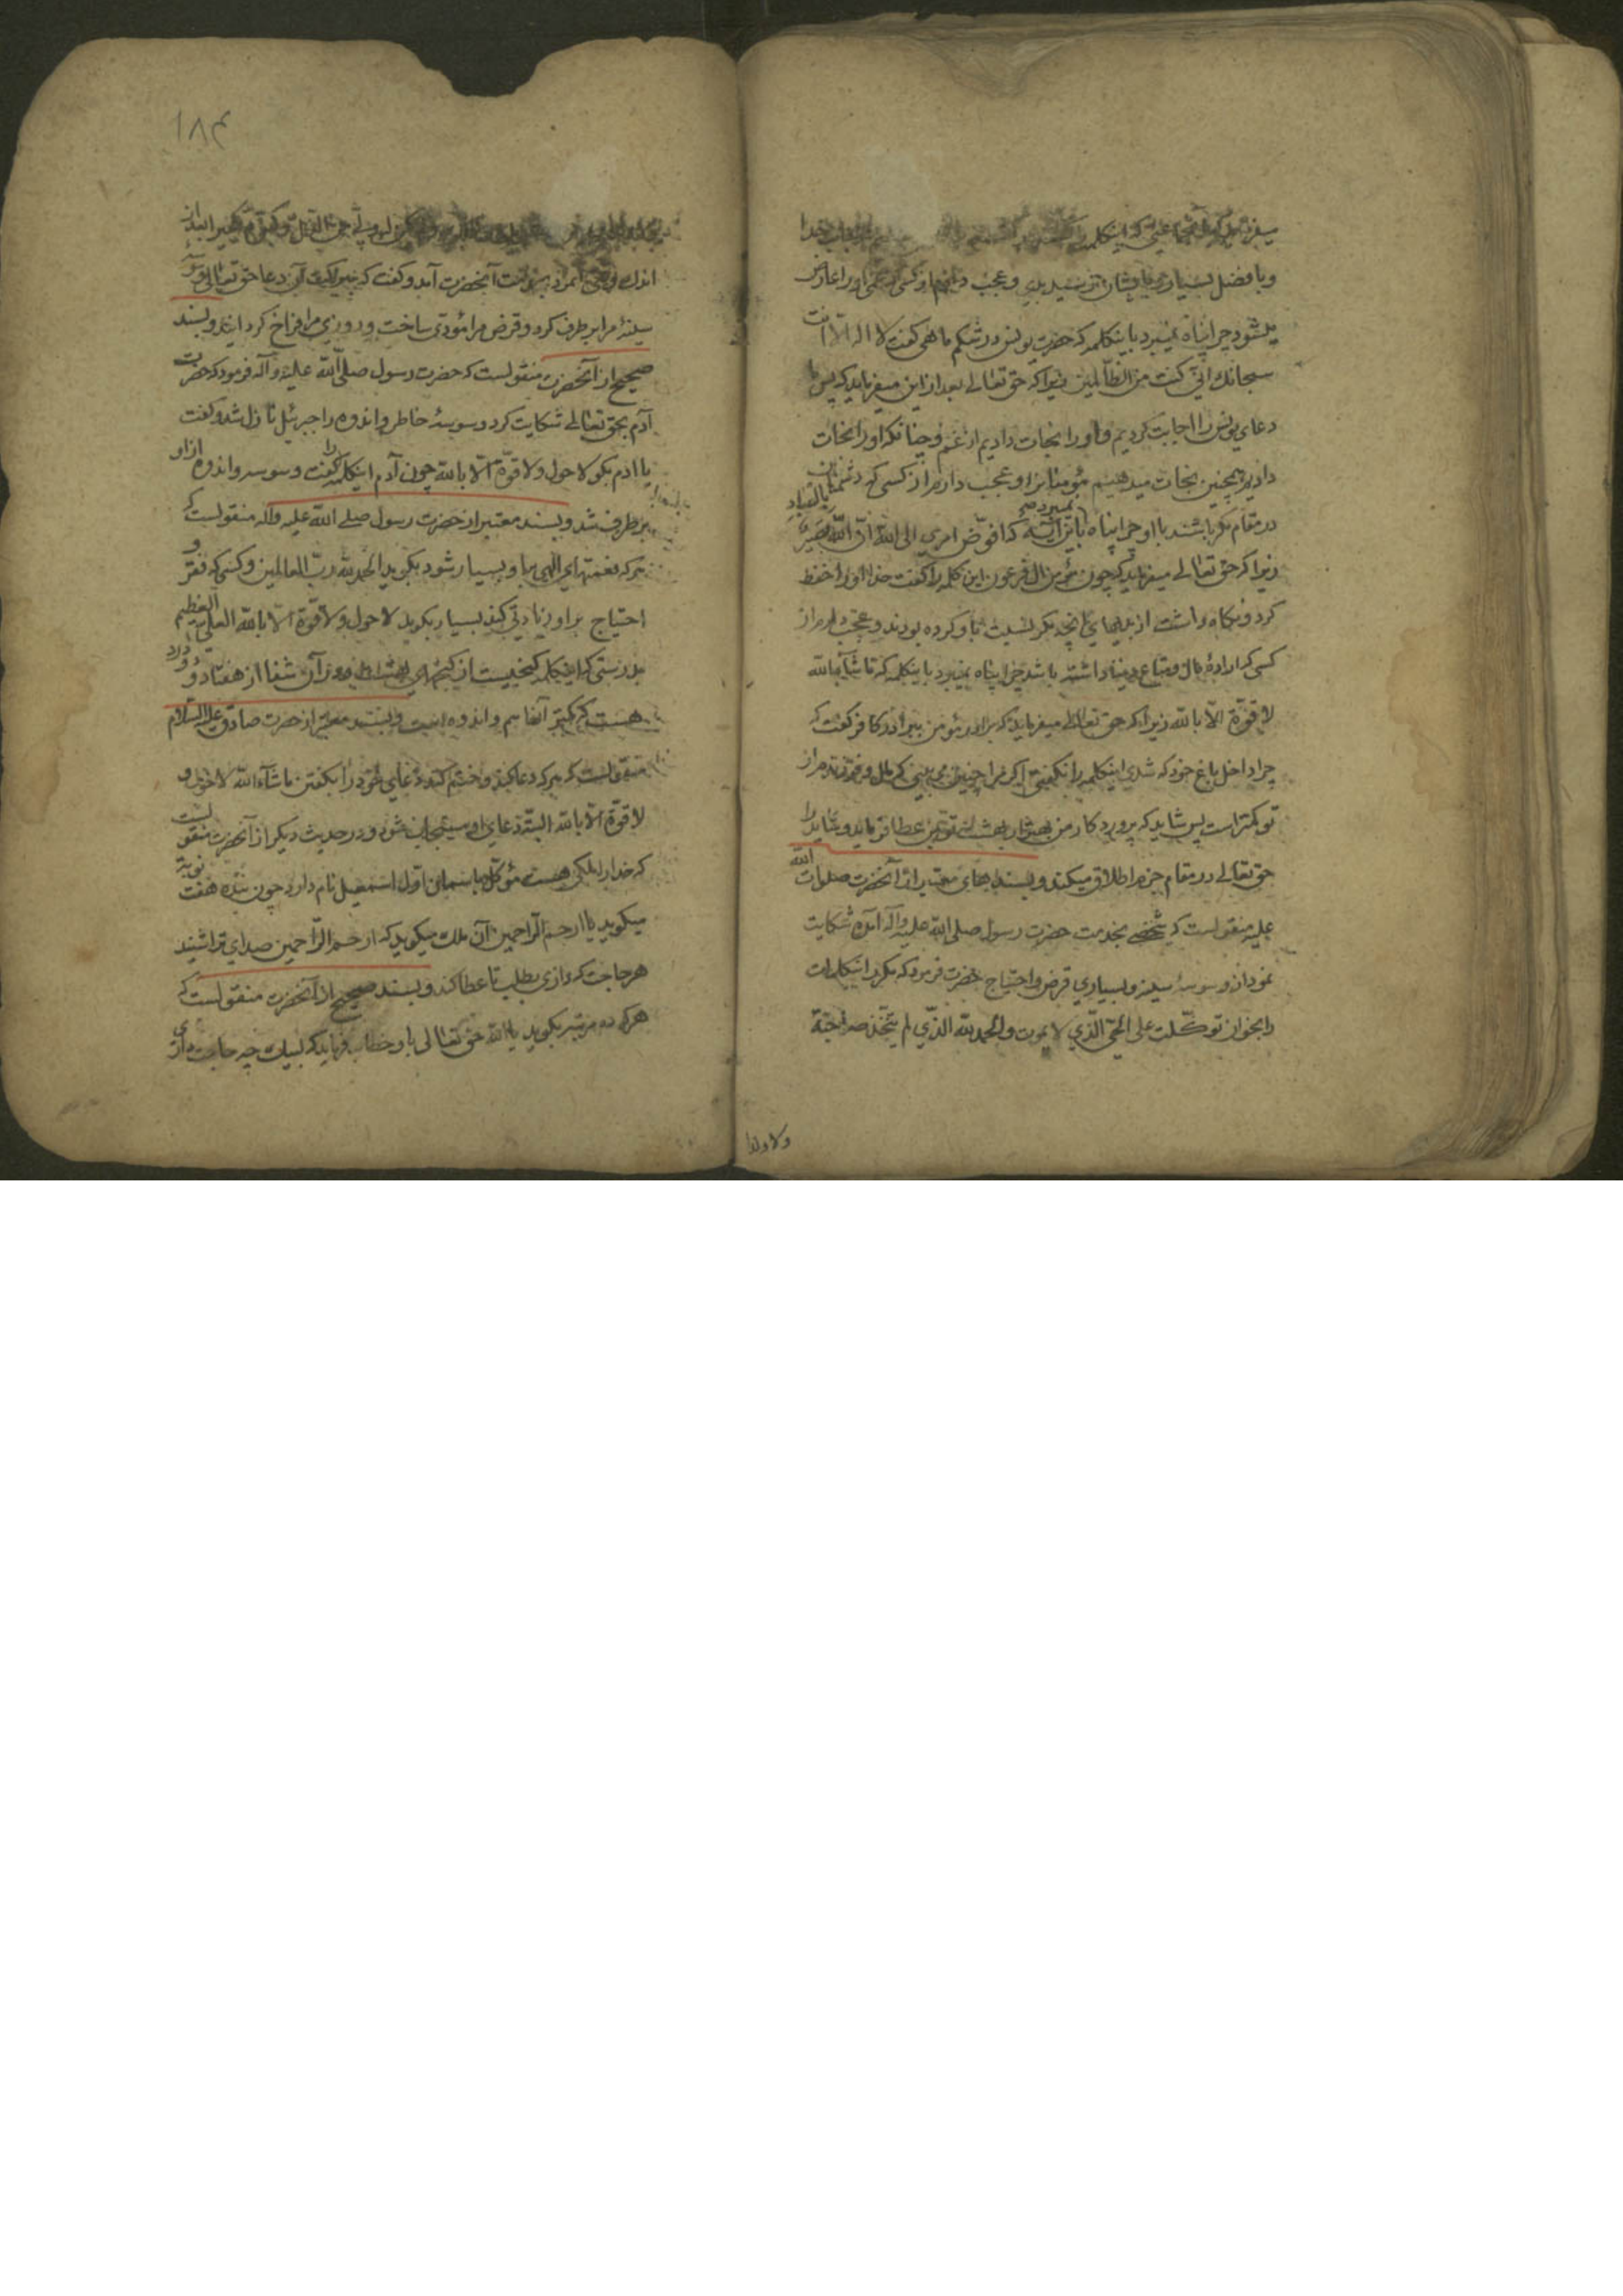 میفرماید که
و با فضل بسیاری و بایشان نرسید بدی و عجب دارم از کسی که غمی او را عارض
میشود چرا پناه نمیبرد باینکلمه که حضرت یونس در شکم ماهی گفت لا اله الّا انت
سبحانك انّی کنت من الظّالمین زیرا که حق تعالی بعد از این میفرماید که پس ما
دعای یونس را اجابت کردیم و او را نجات دادیم از غم و چنانکه او را نجات
دادیم همچنین نجات میدهیم مؤمنانرا و عجب دارم از کسی که دشمنان
در مقام مکر باشند با او چرا پناه نمیبرد باین آیه که افوّض امری الی الله انّ الله بصیر بالعباد
زیرا که حق تعالی میفرماید که چون مؤمن آل فرعون این کلمه را گفت خدا او را حفظ
کرد و نگاه داشت از بدیهای آنچه مکر نسبت باو کرده بودند و عجب دارم از
کسی که ارادهٔ مال و متاع دنیا داشته باشد چرا پناه نمیبرد باینکلمه که ماشاء الله
لا قوّة الّا بالله زیرا که حق تعالی میفرماید که برادر مؤمن ببرادر کافر گفت که
چرا داخل باغ خود که شدی اینکلمه را نگفتی اگر مرا چنین می بینی که مال و فرزندم از
تو کمتر است پس شاید که پروردکار من بهتر از بهشت تو بمن عطا فرماید و شاید را
حق تعالی در مقام جزم اطلاق میکند و بسندهای معتبر از آنحضرت صلوات الله
علیه منقولست که شخصی بخدمت حضرت رسول صلی الله علیه وآله آمد شکایت
نمود از وسوسهٔ سینه و بسیاری قرض و احتیاج حضرت فرمود که مکرر اینکلمات
را بخوان توکّلت علی الحیّ الّذی لا یموت والحمد لله الّذی لم یتّخذ صاحبة
ولا ولدا
۱۸۴
اندك وقتی آنمرد بخدمت آنحضرت آمد و گفت که ببرکت آن دعا حق تعالی وسوسهٔ
سینهٔ مرا برطرف کرد و قرض مرا مؤدّی ساخت و روزی مرا فراخ کردانید و بسند
صحیح از آنحضرت منقولست که حضرت رسول صلّی الله علیه و آله فرمود که حضرت
آدم بحق تعالی شکایت کرد وسوسهٔ خاطر و اندوه را جبرئیل نازل شد و گفت
یا آدم بگو لا حول ولا قوّة الّا بالله چون آدم اینکلمه را گفت وسوسه و اندوه از او
برطرف شد و بسند معتبر از حضرت رسول صلی الله علیه وآله منقولست که
هرکه نعمتهای الهی باو بسیار شود بگوید الحمد لله ربّ العالمین و کسی که فقر و
احتیاج براو زیادتی کند بسیار بگوید لا حول ولا قوّة الّا بالله العلیّ العظیم
بدرستی که اینکلمه گنجیست از گنجهای بهشت و در آن شفا از هفتاد و دو درد
هست که کمتر آنها هم و اندوه است و بسند معتبر از حضرت صادق علیه السّلام
منقولست که هرکه دعا کند و ختم کند دعای خود را بگفتن ماشاء الله لا حول و
لا قوّة الّا بالله البته دعای او مستجاب شود و در حدیث دیگر از آنحضرت منقولست
که خدا را ملکی هست موکّل باسمان اوّل اسمعیل نام دارد چون بنده هفت نوبة
میگوید یا ارحم الرّاحمین آن ملك میگوید که ارحم الرّاحمین صدای ترا شنید
هر حاجت که داری بطلب تا عطا کند و بسند صحیح از آنحضرت منقولست که
هرکه ده مرتبه بگوید یا الله حق تعالی باو خطاب فرماید که لبیك چه حاجت داری